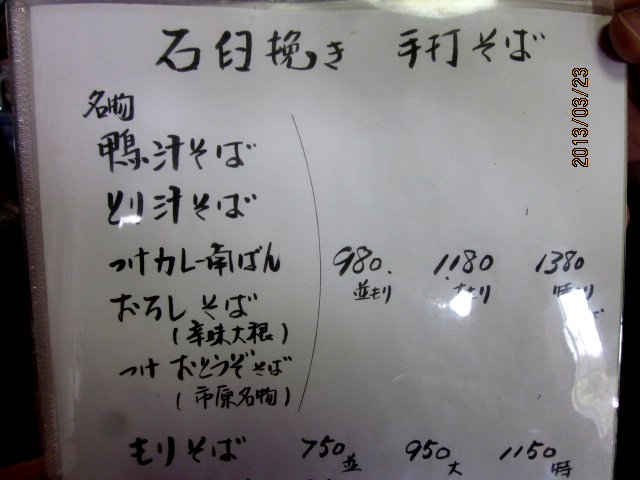 石臼挽き 手打そば
2013/03/23
名物
鴨汁そば
とり汁そば
つけカレー南ばん 980. 1.180 1380
並もり 大もり 特もり
おろしそば
(辛味大根)
つけ おどうぞそば
(市原名物)
もりそば 750並 950大 1150特